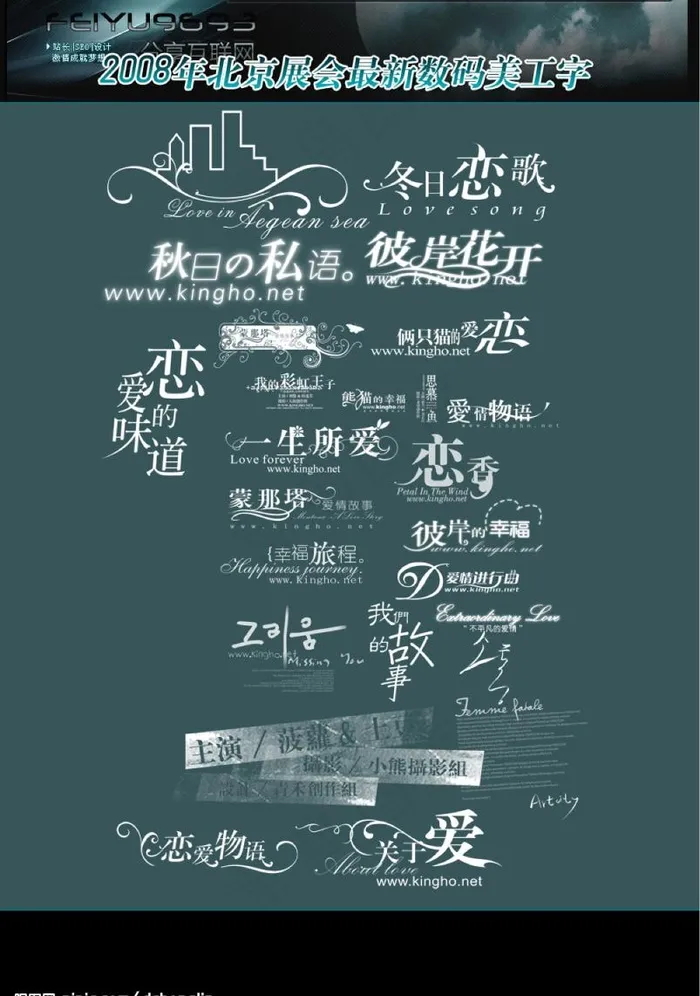 FEIYU9893
站长|SEO|设计
激情成就梦想
分享互联网
2008年北京展会最新数码美工字
Love in Aegean sea
冬日恋歌
Love song
秋日の私语。
www.kingho.net
彼岸花开
www.kingho.net
蒙那塔
俩只猫的爱恋
www.kingho.net
恋爱的味道
我的彩虹王子
熊猫的幸福
www.kingho.net
思慕
鱼
爱情物语
www.kingho.net
一生所爱
Love forever
www.kingho.net
恋香
Petal In The Wind
www.kingho.net
蒙那塔
爱情故事
www.kingho.net
彼岸的幸福
www.kingho.net
{幸福旅程。
Happiness journey.
www.kingho.net
D爱情进行曲
www.kingho.net
그리움
www.kingho.net
Missing You
我們的故事
Extraordinary Love
"不平凡的爱情"
Femme fatale
主演 / 菠蘿 & 土豆
攝影 / 小熊攝影組
設計 / 青禾創作組
Artcity
恋爱物语
关于爱
About love
www.kingho.net